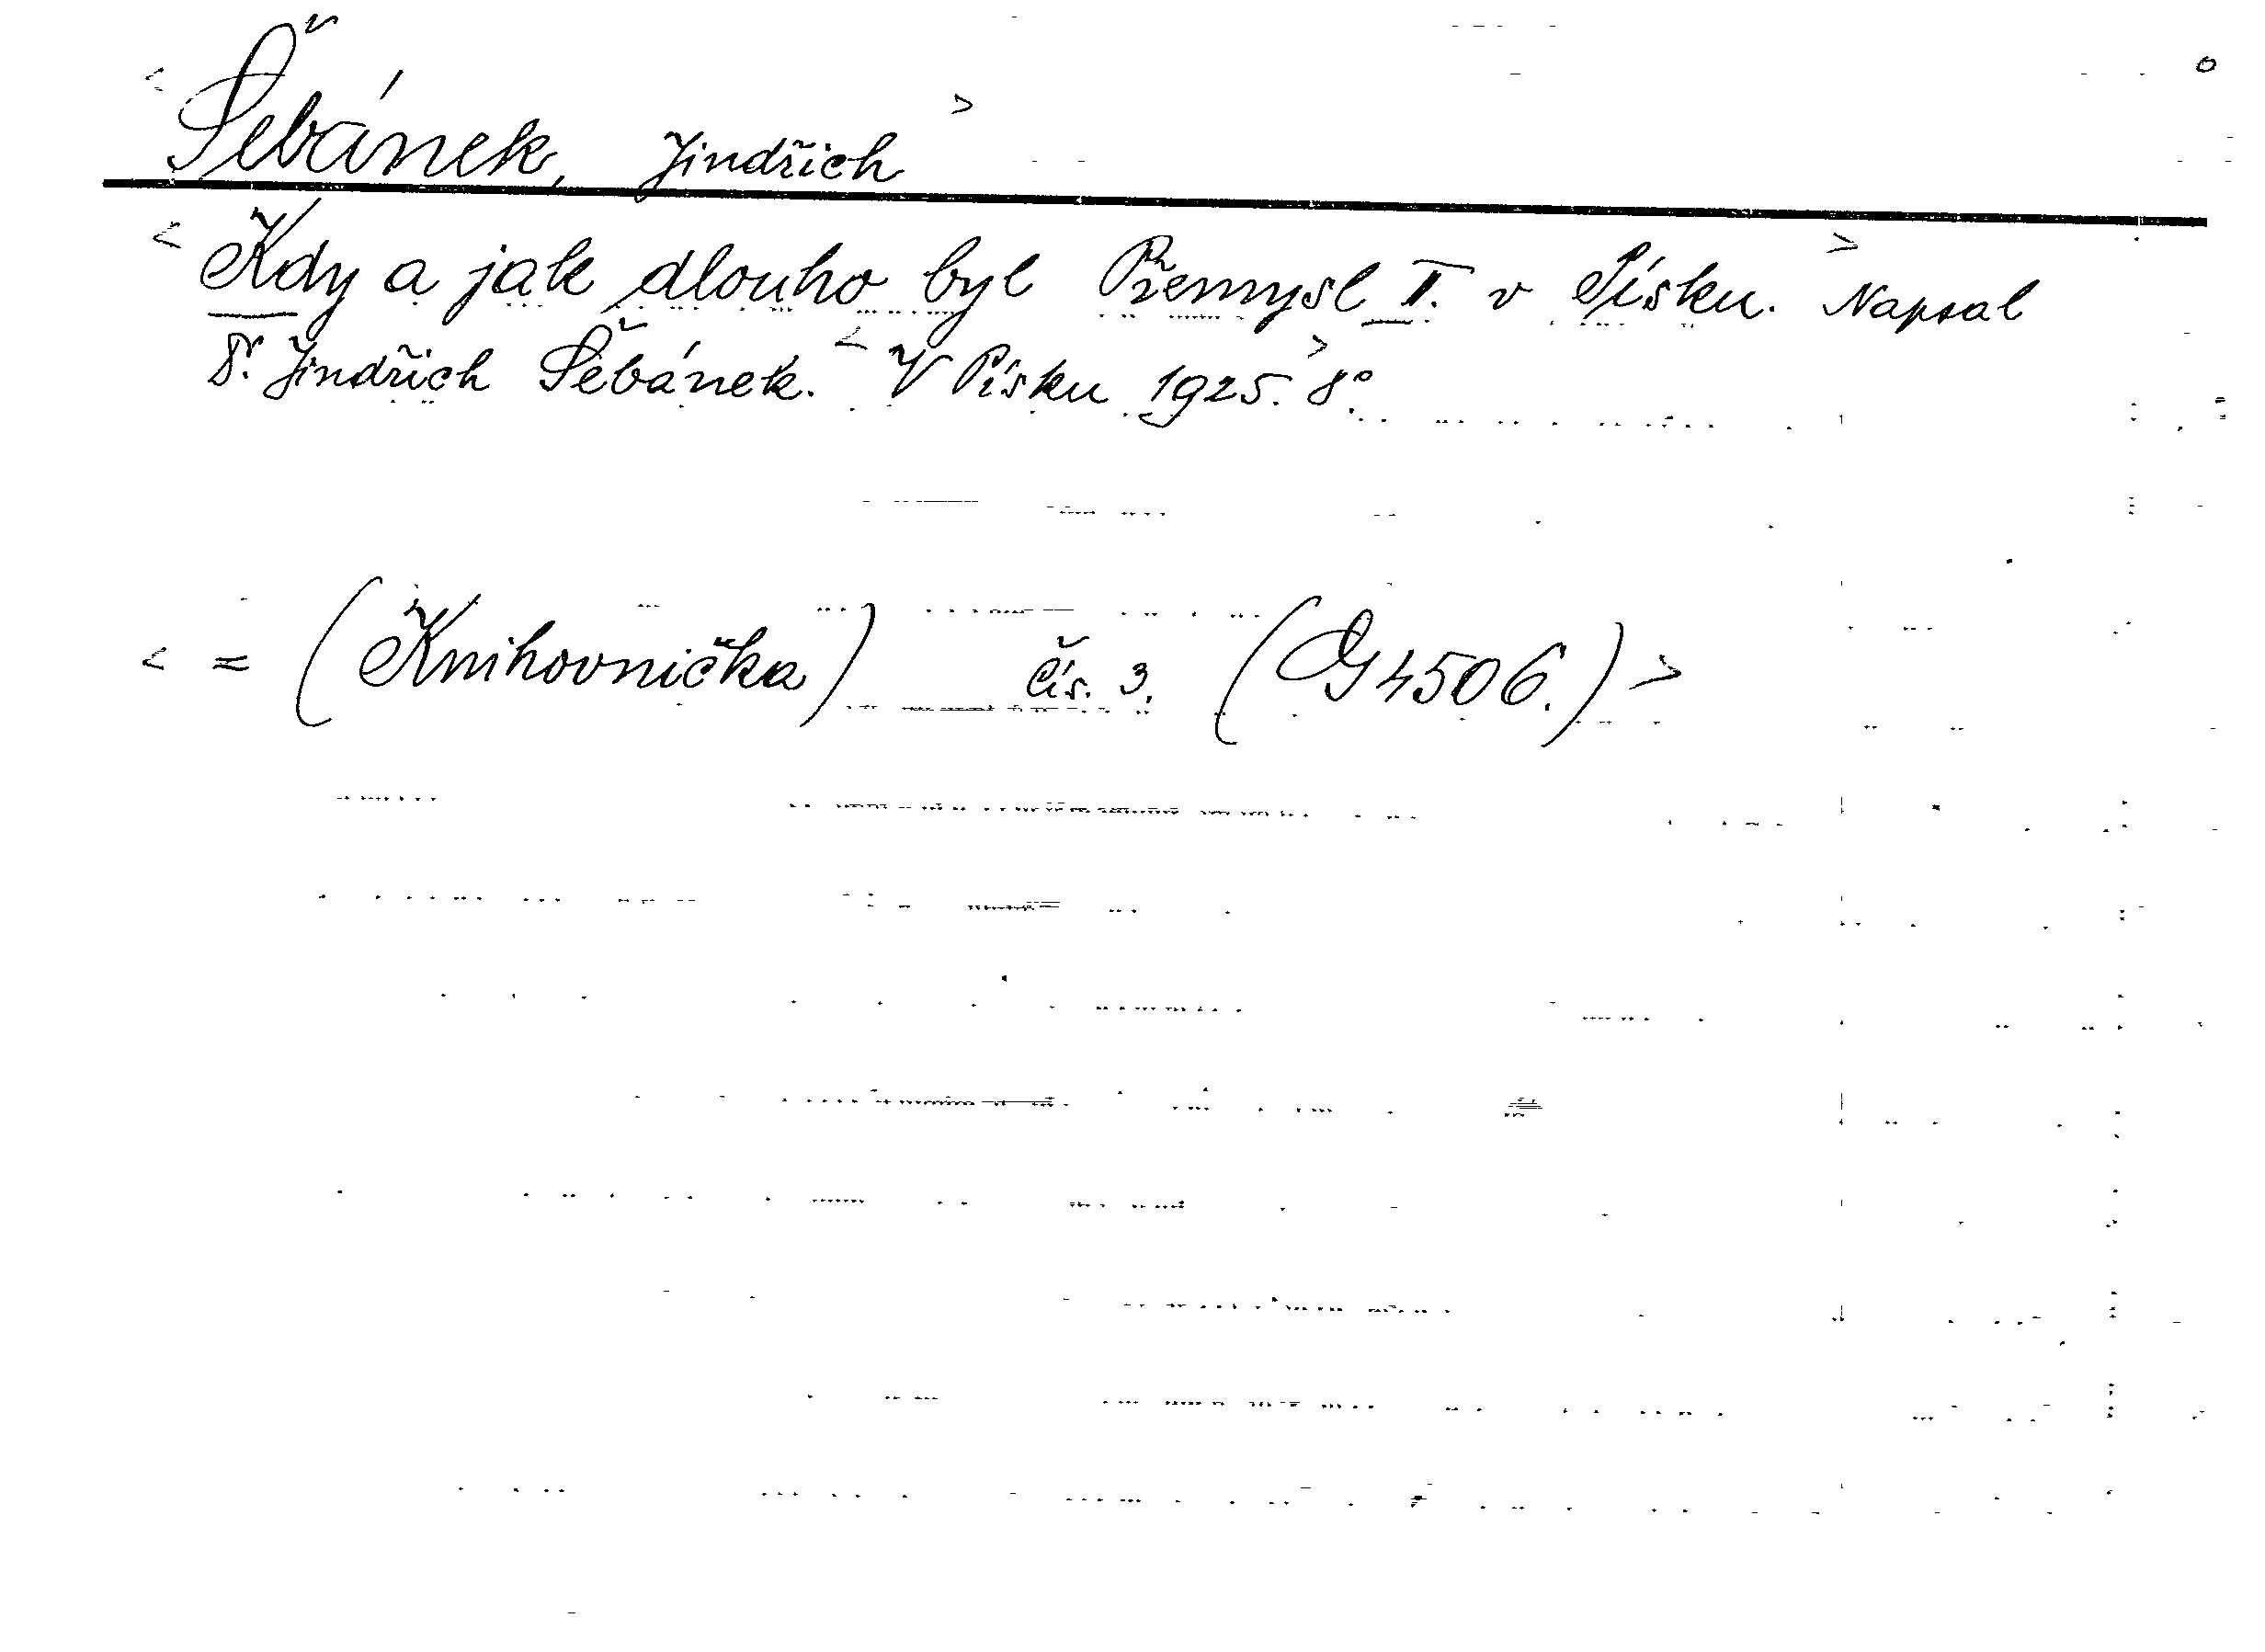 < Šebánek, Jindřich >
< Kdy a jak dlouho byl Přemysl II. v Písku. > Napsal
Dr. Jindřich Šebánek. < V Písku 1925. > 8°.
< = (Knihovnička) čís. 3. (G 4506.) >